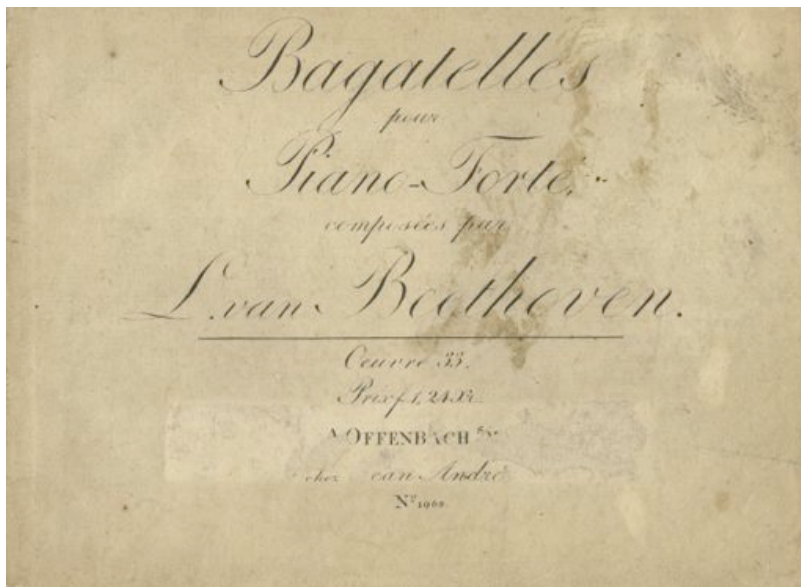 Bagatelles
pour
Piano-Forte,
composées par
L. van Beethoven.
Oeuvre 33.
Prix f. 1, 24 Xr.
A OFFENBACH s/m
chez ean André
Nº